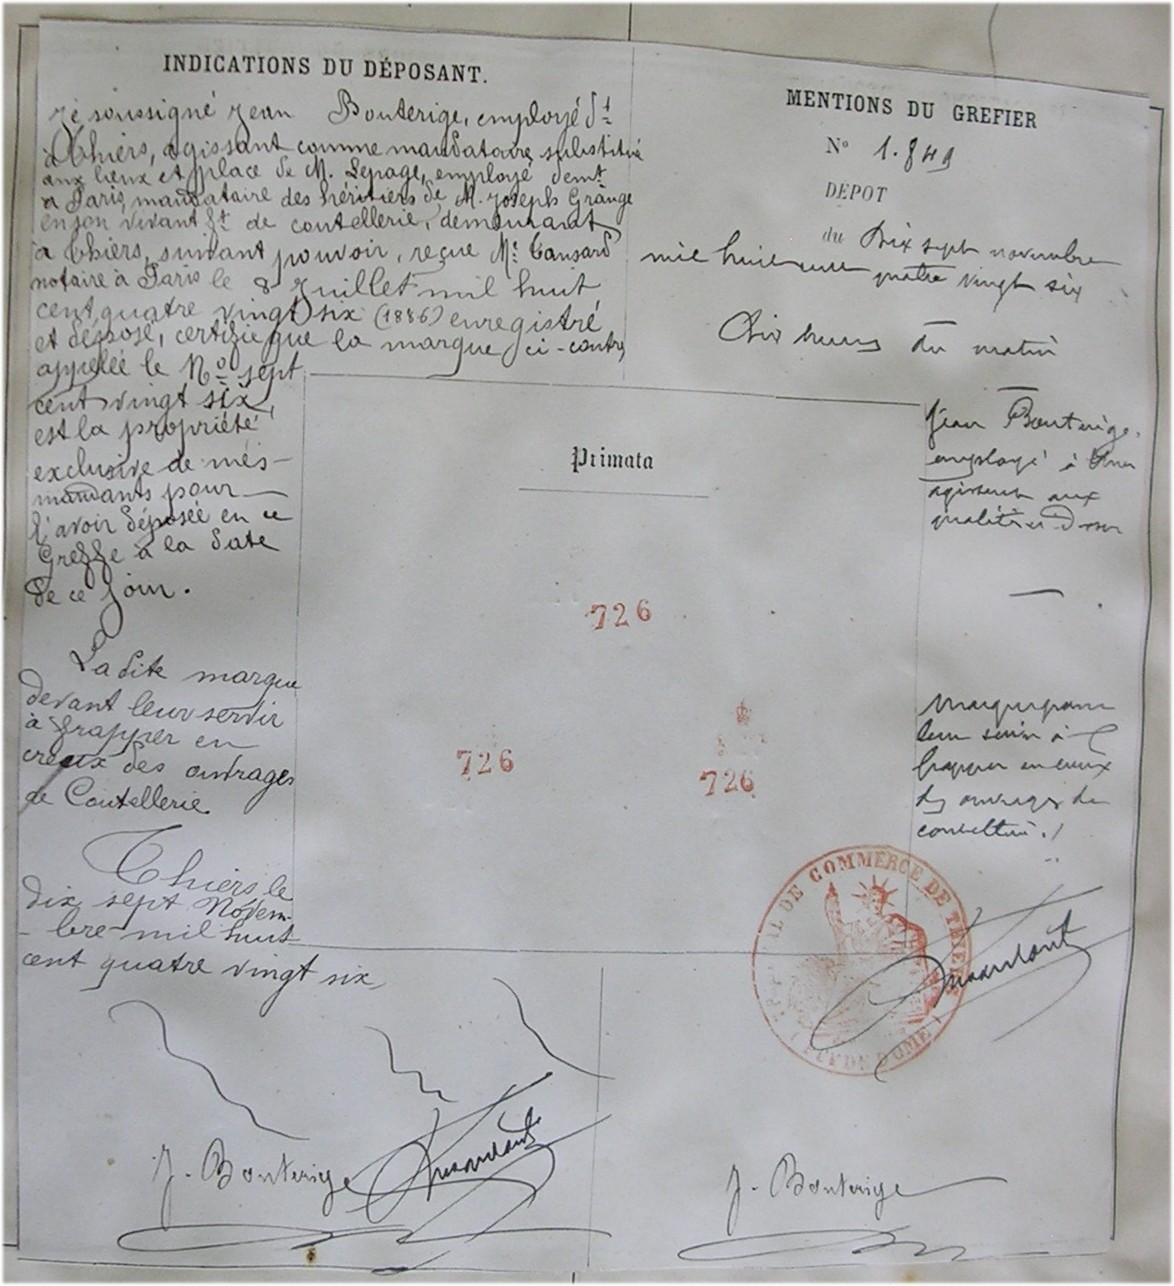 INDICATIONS DU DÉPOSANT.
Je soussigné Jean Bouterige, employé dt
à Thiers, agissant comme mandataire substitué
aux lieux et place de M. Lepage, employé demt
à Paris, mandataire des héritiers de M. Joseph Grange
en son vivant ft de coutellerie, demeurant
à Thiers, suivant pouvoir, reçue Me
notaire à Paris le 8 Juillet mil huit
cent quatre vingt six (1886) enregistré
et déposé, certifie que la marque ci-contre
appelée le No sept
cent vingt six,
est la propriété
exclusive de més
mandants pour
l'avoir déposée en ce
Greffe à la date
de ce jour.
La dite marque
devant leur servir
à frapper en
creux des ouvrages
de Coutellerie
Thiers le
dix sept Novem-
-bre mil huit
cent quatre vingt six,
J. Bouterige
MENTIONS DU GREFIER
No 1.849
DÉPOT
du Dix sept novembre
mil huit cent quatre vingt six
Dix heures du matin
Primata
726
726
726
Jean Bouterige,
employé à Thiers
agissant aux
qualités
Marque pour
leur servir à
frapper en creux
des ouvrages de
coutellerie./
TRIBUNAL DE COMMERCE DE THIERS
(PUY DE DOME)
J. Bouterige